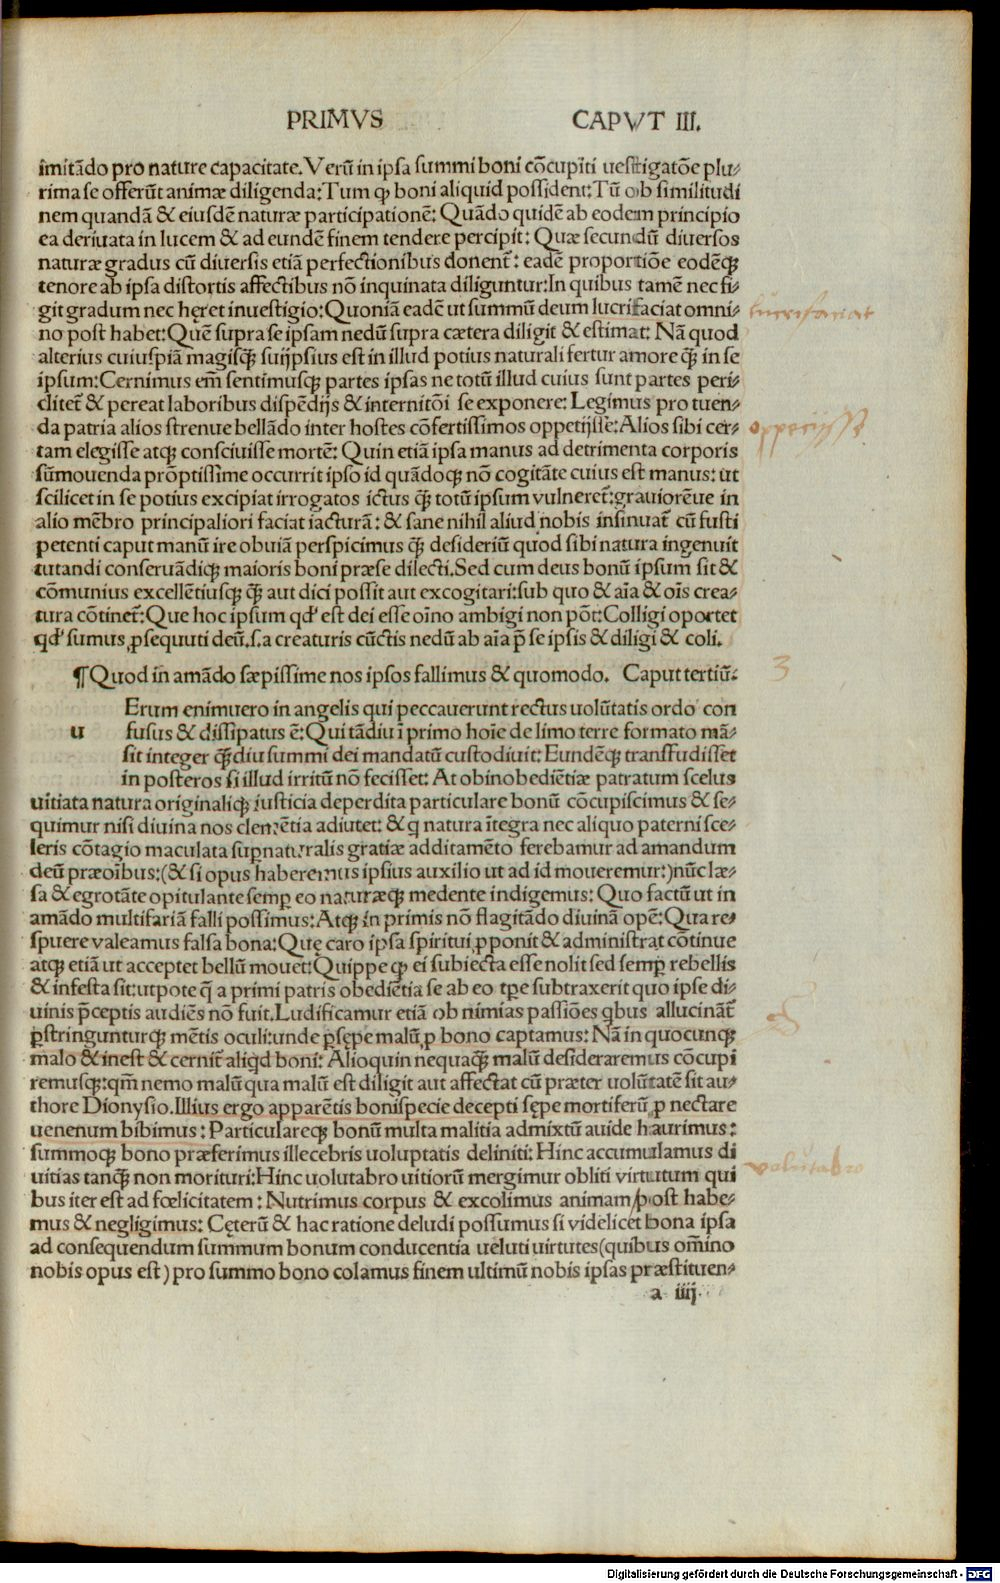 PRIMVS CAPVT III.
imitãdo pro nature capacitate. Verũ in ipsa summi boni cõcupiti uestigatõe plu⸗
rima se offerũt animæ diligenda: Tum ꝙ boni aliquid possident: Tũ ob similitudi
nem quandã & eiusdẽ naturæ participationẽ: Quãdo quidẽ ab eodem principio
ea deriuata in lucem & ad eundẽ finem tendere percipit: Quæ secundũ diuersos
naturæ gradus cũ diuersis etiã perfectionibus donent᷑: eadẽ proportiõe eodẽꝗ
tenore ab ipsa distortis affectibus nõ inquinata diliguntur: In quibus tamẽ nec fi⸗
git gradum nec hęret inuestigio: Quoniã eadẽ ut summũ deum lucrifaciat omni⸗
no post habet: Quẽ supra se ipsam nedũ supra cætera diligit & estimat: Nã quod
alterius cuiuspiã magisꝗ suijpsius est in illud potius naturali fertur amore ꝗ̃ in se
ipsum: Cernimus em̃ sentimusꝗ partes ipsas ne totũ illud cuius sunt partes peri⸗
clitet᷑ & pereat laboribus dispẽdijs & internitõi se exponere: Legimus pro tuen⸗
da patria alios strenue bellãdo inter hostes cõfertissimos oppetijsse: Alios sibi cer⸗
tam elegisse atꝗ consciuisse mortẽ: Quin etiã ipsa manus ad detrimenta corporis
sũmouenda prõptissime occurrit ipso id quãdoꝗ nõ cogitãte cuius est manus: ut
scilicet in se potius excipiat irrogatos ictus ꝗ̃ totũ ipsum vulneret᷑: grauiorẽue in
alio mẽbro principaliori faciat iacturã: & sane nihil aliud nobis insinuat᷑ cũ fusti
petenti caput manũ ire obuiã perspicimus ꝗ̃ desideriũ quod sibi natura ingenuit
tutandi conseruãdiꝗ maioris boni præse dilecti. Sed cum deus bonũ ipsum sit &
cõmunius excellẽtiusꝗ ꝗ̃ aut dici possit aut excogitari: sub quo & aĩa & oĩs crea⸗
tura cõtinet᷑: Que hoc ipsum qđ est dei esse oĩno ambigi non põt: Colligi oportet
qđ sumus ꝓsequuti deũ. s. a creaturis cũctis nedũ ab aĩa p̃ se ipsis & diligi & coli.
¶ Quod in amãdo sæpissime nos ipsos fallimus & quomodo. Caput tertiũ:
Erum enimuero in angelis qui peccauerunt rectus uolũtatis ordo con
u fusus & dissipatus ẽ: Qui tãdiu ĩ primo hoĩe de limo terre formato mã⸗
sit integer ꝗ̃diu summi dei mandatũ custodiuit: Eundẽꝗ transfudisset
in posteros si illud irritũ nõ fecisset: At ob inobediẽtiæ patratum scelus
uitiata natura originaliꝗ iusticia deperdita particulare bonũ cõcupiscimus & se⸗
quimur nisi diuina nos clemẽtia adiutet: & q natura ĩtegra nec aliquo paterni sce⸗
leris cõtagio maculata suꝑnaturalis gratiæ additamẽto ferebamur ad amandum
deũ præoĩbus: (& si opus haberemus ipsius auxilio ut ad id moueremur:) nũc læ⸗
sa & egrotãte opitulante semꝑ eo naturæꝗ medente indigemus: Quo factũ ut in
amãdo multifariã falli possimus: Atꝗ in primis nõ flagitãdo diuinã opẽ: Qua re⸗
spuere valeamus falsa bona: Quę caro ipsa spiritui ꝓponit & administrat cõtinue
atꝗ etiã ut acceptet bellũ mouet: Quippe ꝙ ei subiecta esse nolit sed semꝑ rebellis
& infesta sit: utpote q̃ a primi patris obediẽtia se ab eo tꝑe subtraxerit quo ipse di⸗
uinis p̃ceptis audiẽs nõ fuit. Ludificamur etiã ob nimias passiões qbus allucinãt᷑
ꝑstringunturꝗ mẽtis oculi: unde ꝑsępe malũ ꝓ bono captamus: Nã in quocunꝗ
malo & inest & cernit᷑ aliqd boni: Alioquin nequaꝗ̃ malũ desideraremus cõcupi
remusꝗ: qm̃ nemo malũ qua malũ est diligit aut affectat cũ præter uolũtatẽ sit au⸗
thore Dionysio. Illius ergo apparẽtis boni specie decepti sępe mortiferũ ꝓ nectare
uenenum bibimus: Particulareꝗ bonũ multa malitia admixtũ auide haurimus:
summoꝗ bono præferimus illecebris uoluptatis deliniti: Hinc accumulamus di
uitias tanꝗ̃ non morituri: Hinc uolutabro uitiorũ mergimur obliti virtutum qui
bus iter est ad fœlicitatem: Nutrimus corpus & excolimus animam/post habe⸗
mus & negligimus: Cęterũ & hac ratione deludi possumus si videlicet bona ipsa
ad consequendum summum bonum conducentia ueluti uirtutes (quibus om̃ino
nobis opus est) pro summo bono colamus finem ultimũ nobis ipsas præstituen⸗
a iiij.
lucrifaciat
oppetijsse
3
volutabro
Digitalisierung gefördert durch die Deutsche Forschungsgemeinschaft - DFG